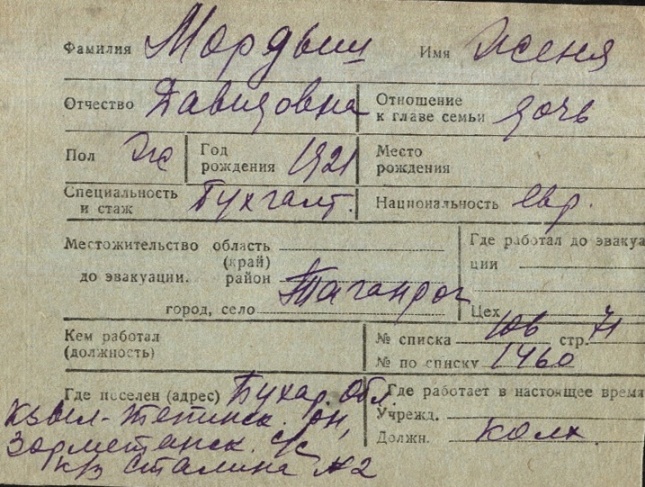 Фамилия Мордыш Имя Женя
Отчество Давидовна Отношение к главе семьи дочь
Пол Ж Год рождения 1921 Место рождения
Специальность и стаж Бухгалт. Национальность евр.
Местожительство область Где работал до эвакуа
(край) ции
до эвакуации. район
город, село Таганрог Цех
Кем работал № списка 106 стр. 71
(должность) № по списку 1460
Где поселен (адрес) Бухар. Обл. Где работает в настоящее время
Кзыл-Тепинск. рн, Учрежд.
с/с Должн. колх.
к/з Сталина №2